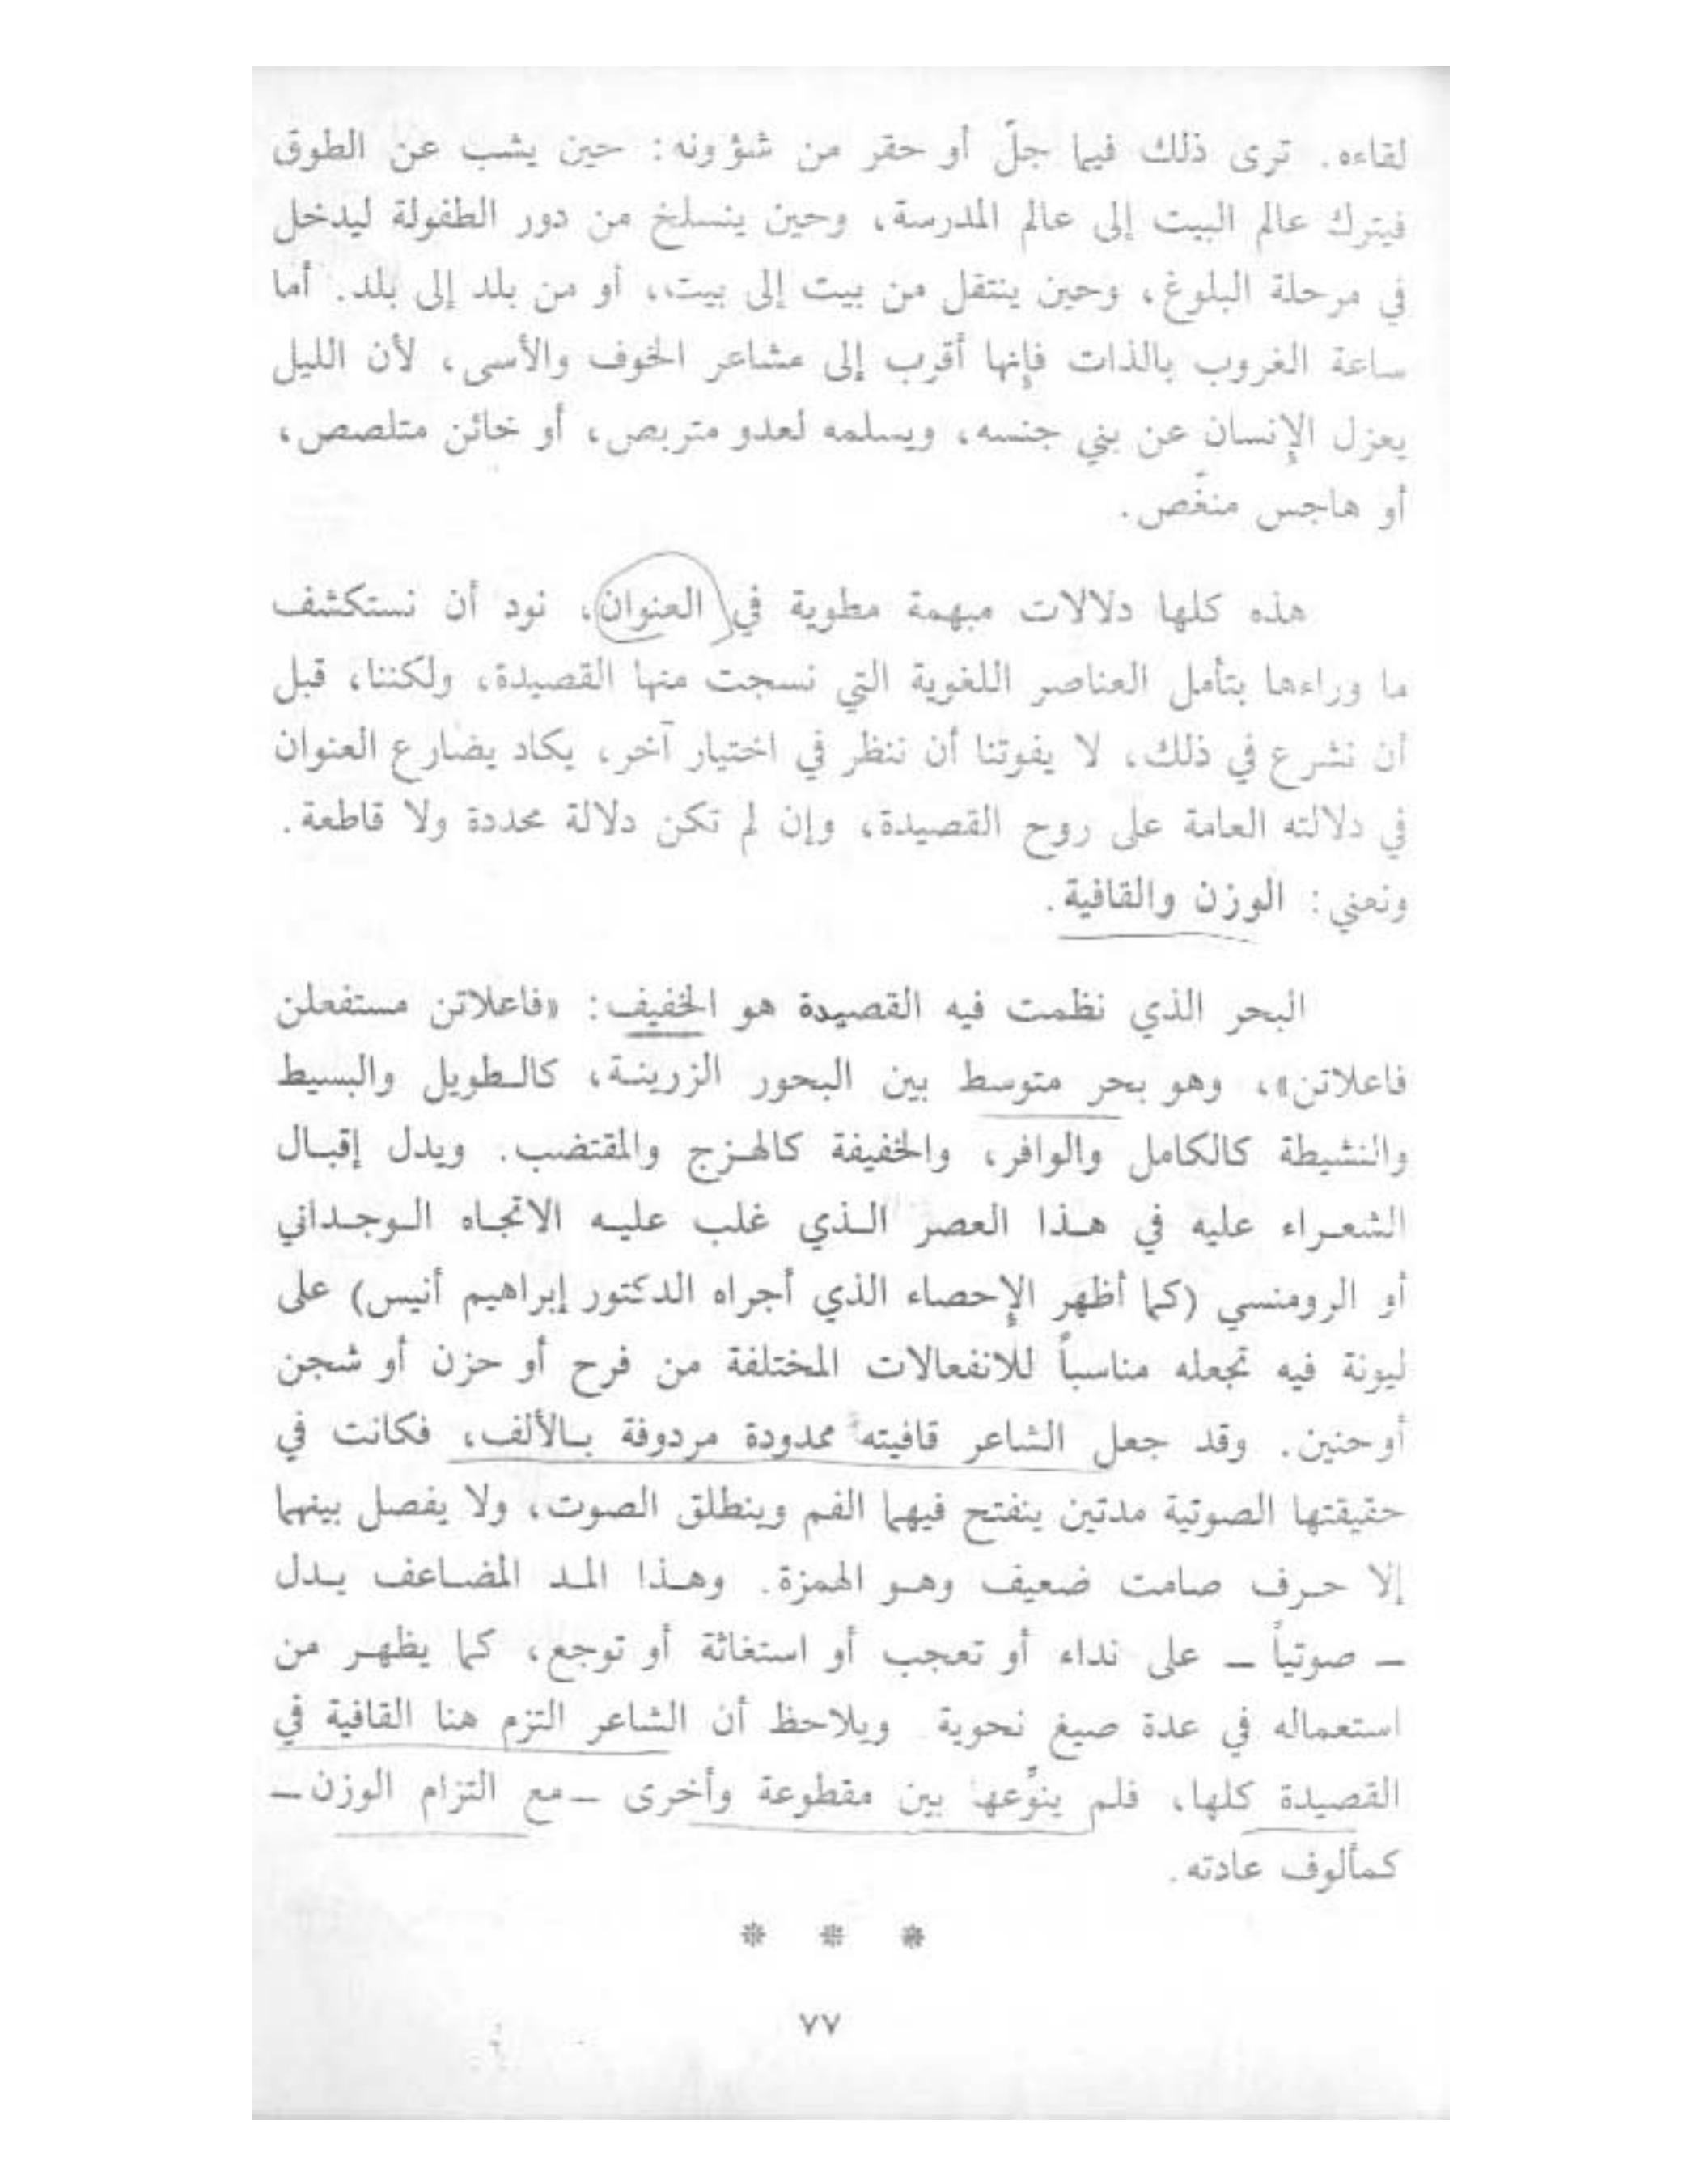 لقاءه. ترى ذلك فيما جلّ أو حقر من شؤونه: حين يشب عن الطوق
فيترك عالم البيت إلى عالم المدرسة، وحين ينسلخ من دور الطفولة ليدخل
في مرحلة البلوغ، وحين ينتقل من بيت إلى بيت، أو من بلد إلى بلد. أما
ساعة الغروب بالذات فإنها أقرب إلى مشاعر الخوف والأسى، لأن الليل
يعزل الإنسان عن بني جنسه، ويسلمه لعدو متربص، أو خائن متلصص،
أو هاجس منغّص.
هذه كلها دلالات مبهمة مطوية في العنوان، نود أن نستكشف
ما وراءها بتأمل العناصر اللغوية التي نسجت منها القصيدة، ولكننا، قبل
أن نشرع في ذلك، لا يفوتنا أن ننظر في اختيار آخر، يكاد يضارع العنوان
في دلالته العامة على روح القصيدة، وإن لم تكن دلالة محددة ولا قاطعة.
ونعني: الوزن والقافية.
البحر الذي نظمت فيه القصيدة هو الخفيف: «فاعلاتن مستفعلن
فاعلاتن»، وهو بحر متوسط بين البحور الزرينة، كالطويل والبسيط
والنشيطة كالكامل والوافر، والخفيفة كالهزج والمقتضب. ويدل إقبال
الشعراء عليه في هذا العصر الذي غلب عليه الاتجاه الوجداني
أو الرومنسي (كما أظهر الإحصاء الذي أجراه الدكتور إبراهيم أنيس) على
ليونة فيه تجعله مناسباً للانفعالات المختلفة من فرح أو حزن أو شجن
أو حنين. وقد جعل الشاعر قافيته ممدودة مردوفة بالألف، فكانت في
حقيقتها الصوتية مدتين ينفتح فيهما الفم وينطلق الصوت، ولا يفصل بينهما
إلا حرف صامت ضعيف وهو الهمزة. وهذا المد المضاعف يدل
ـ صوتياً ـ على نداء أو تعجب أو استغاثة أو توجع، كما يظهر من
استعماله في عدة صيغ نحوية. ويلاحظ أن الشاعر التزم هنا القافية في
القصيدة كلها، فلم ينوِّعها بين مقطوعة وأخرى ـ مع التزام الوزن ـ
كمألوف عادته.
* * *
٧٧